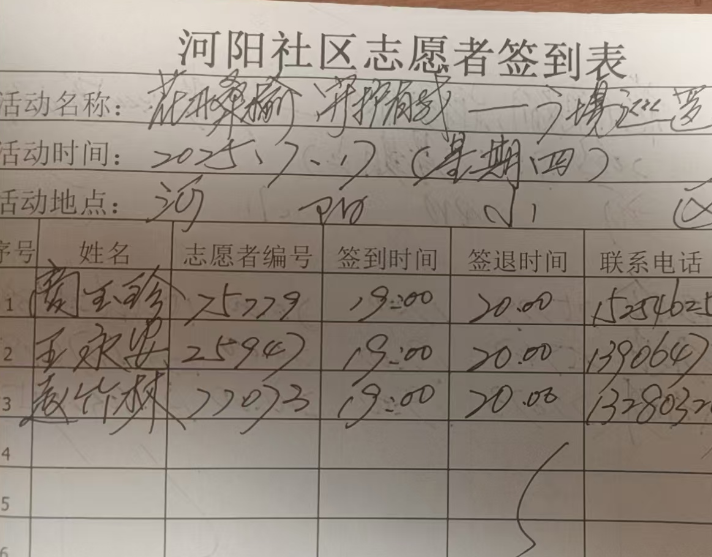 河阳社区志愿者签到表
活动名称： 守护有我 — 广场巡逻
活动时间： 2025、7、17（星期四）
活动地点： 河 阳 小 区
序号 姓名 志愿者编号 签到时间 签退时间 联系电话
1 周玉珍 75779 19:00 20.00 15254625
2 王永安 25947 19:00 20.00 1390647
3 赵竹林 77073 19:00 20.00 1328032
4
5
6